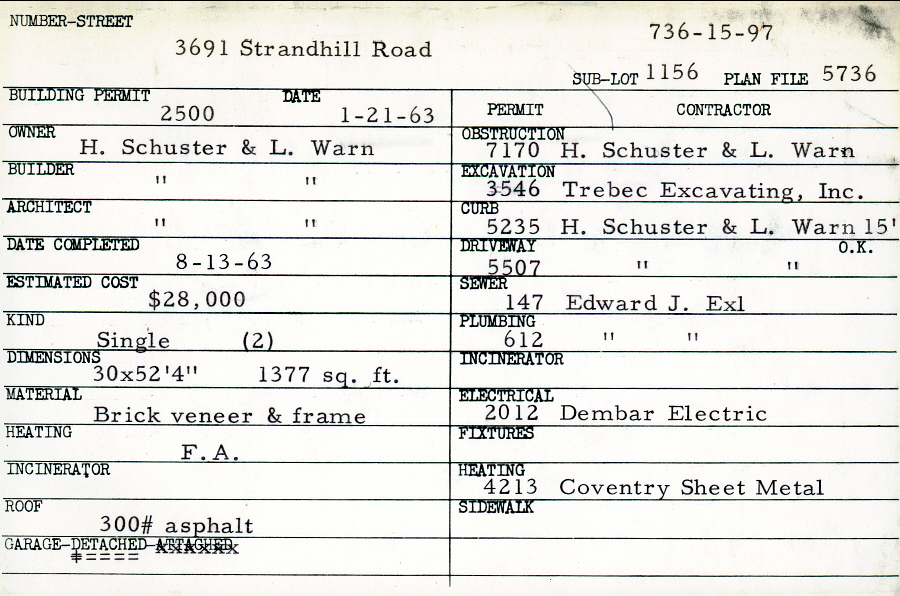 NUMBER-STREET
736-15-97
3691 Strandhill Road
SUB-LOT 1156 PLAN FILE 5736
BUILDING PERMIT DATE
2500 1-21-63
PERMIT CONTRACTOR
OWNER
H. Schuster & L. Warn
OBSTRUCTION
7170 H. Schuster & L. Warn
BUILDER
" "
EXCAVATION
3546 Trebec Excavating, Inc.
ARCHITECT
" "
CURB
5235 H. Schuster & L. Warn 15'
DATE COMPLETED
8-13-63
DRIVEWAY O.K.
5507 " "
ESTIMATED COST
$28,000
SEWER
147 Edward J. Exl
KIND
Single (2)
PLUMBING
612 " "
DIMENSIONS
30x52'4" 1377 sq. ft.
INCINERATOR
MATERIAL
Brick veneer & frame
ELECTRICAL
2012 Dembar Electric
HEATING
F.A.
FIXTURES
INCINERATOR
HEATING
4213 Coventry Sheet Metal
ROOF
300# asphalt
SIDEWALK
GARAGE-DETACHED-ATTACHED